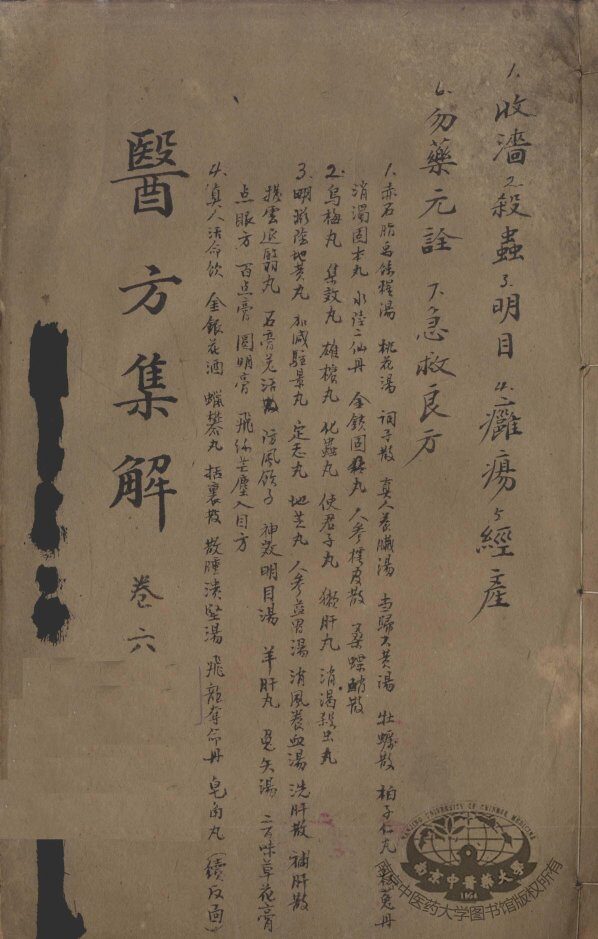 1. 收濇 2. 殺蟲 3. 明目 4. 癰瘍 5. 經產
6. 勿藥元詮 7. 急救良方
1. 赤石脂禹餘糧湯 桃花湯 訶子散 真人養臟湯 當歸大黃湯 牡蠣散 柏子仁丸 菟丹
消濁固本丸 水陸二仙丹 金鎖固精丸 人參樗皮散 桑螵蛸散
2. 烏梅丸 集效丸 雄檳丸 化蟲丸 使君子丸 獺肝丸 消渴殺虫丸
3. 明地黄丸 加減駐景丸 定志丸 地芝丸 人參益胃湯 消風養血湯 洗肝散 補肝散
撥雲退翳丸 石膏羌活散 防風飲子 神效明目湯 羊肝丸 兎矢湯 二百味草花膏
点眼方 百点膏 圓明膏 飛絲芒塵入目方
4. 真人活命飲 金銀花酒 蠟礬丸 托裏散 散腫潰堅湯 飛龍奪命丹 皂角丸 (續反面)
醫方集解
卷六
NANJING UNIVERSITY OF CHINESE MEDICINE
南京中醫藥大學
1954
南京中医药大学图书馆版权所有